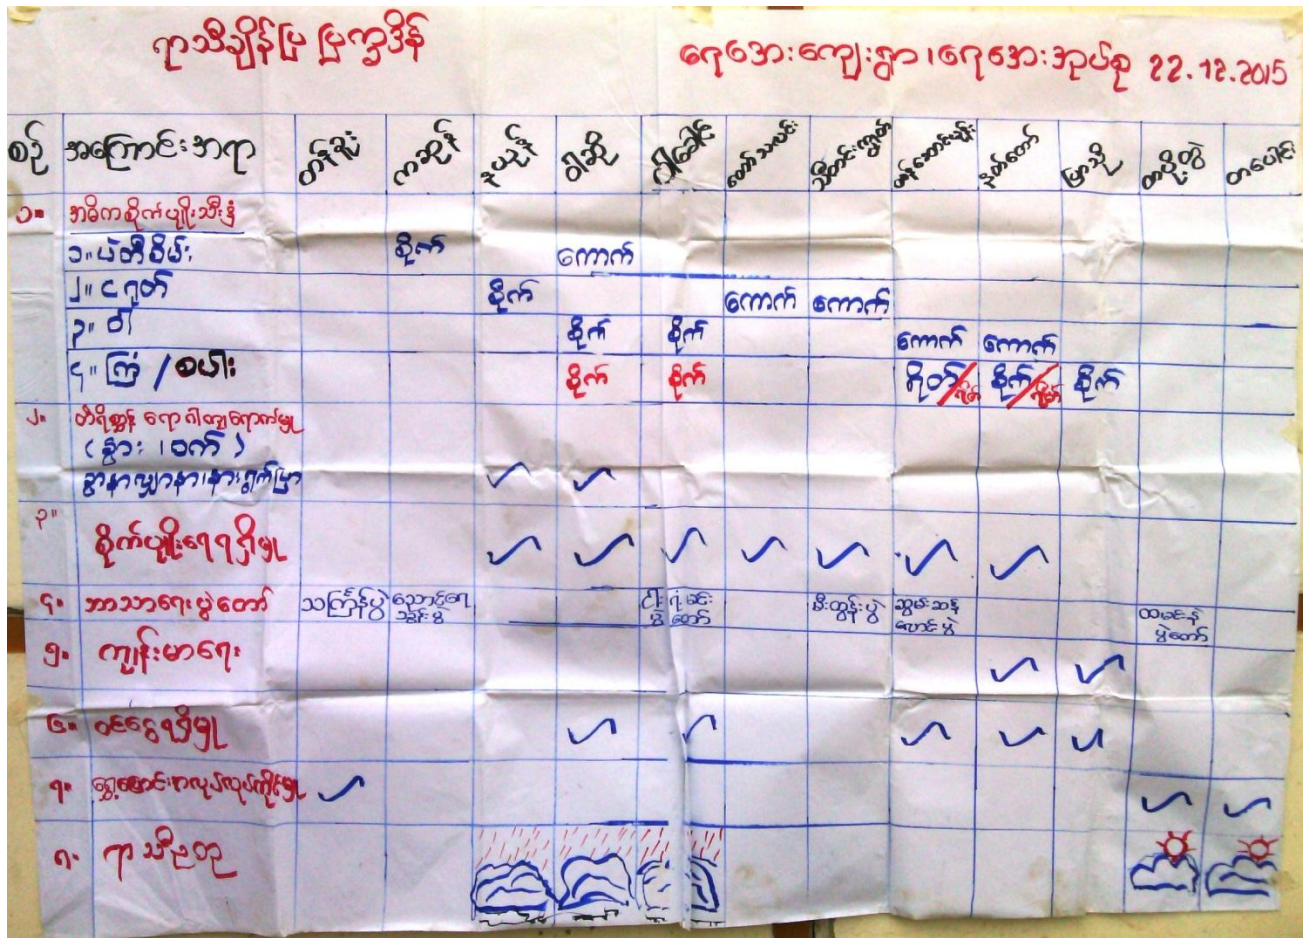 ရာသီချိန်ပြ ပြက္ခဒိန်
ရေအေးကျေးရွာ၊ ရေအေးအုပ်စု 22.12.2015
စဉ် အကြောင်းအရာ တန်ခူး ကဆုန် နယုန် ဝါဆို ဝါခေါင် တော်သလင်း သီတင်းကျွတ် တန်ဆောင်မုန်း နတ်တော် ပြာသို တပို့တွဲ တပေါင်း
၁။ အဓိကစိုက်ပျိုးသီးနှံ
၁။ ပဲတီစိမ်း စိုက် ကောက်
၂။ ငရုတ် စိုက် ကောက် ကောက်
၃။ ဝါ စိုက် စိုက် ကောက် ကောက်
၄။ ကြံ / စပါး စိုက် စိုက် ရိတ်/ရိတ် စိုက်/ရိတ် စိုက်
၂။ တိရိစ္ဆာန် ရောဂါကျရောက်မှု
(နွား ၊ ဝက်)
ခွာနာလျှာနာ၊နားရွက်ပြာ
၃။ စိုက်ပျိုးရေရရှိမှု
၄။ ဘာသာရေးပွဲတော် သင်္ကြန်ပွဲ ညောင်ရေသွန်းပွဲ ငါးရံ့မင်းပွဲတော် မီးထွန်းပွဲ ဆွမ်းဆန်လောင်းပွဲ ထမနဲပွဲတော်
၅။ ကျန်းမာရေး
၆။ ဝင်ငွေရရှိမှု
၇။ ရွှေ့ပြောင်းအလုပ်လုပ်ကိုင်မှု
၈။ ရာသီဥတု